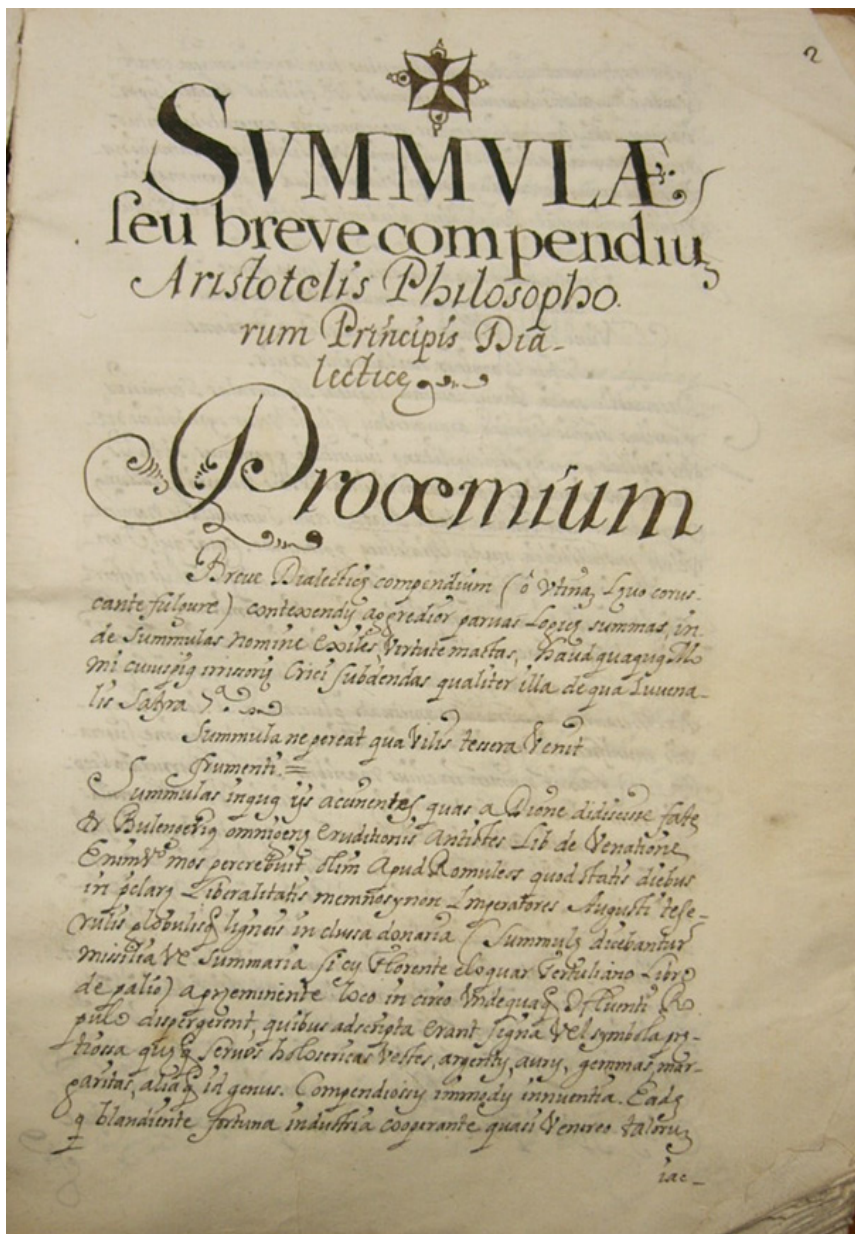 2
SVMMVLÆ
seu breve compendiu
Aristotelis Philosopho.
rum Principis Dia-
lectice
Prooemium
Breve Dialecticę compendium (ô Vtina, quo corus-
cante fulgure) contexendy aggredior parvas Logicę summas, in-
de Summulas nomine exiles, Virtute mactas, haud quaquą
mi cuiuspią irrisorij subdendas qualiter illa de qua Iuvena-
lis Satyra 7.ª
Summula ne pereat qua Vilis tessera Venit
frumenti =
Summulas inquą ijs acunentes quas a Dione didicisse
& Bulengerią omnigenę eruditionis Antistes Lib de Venatione
EnimVº mos percrebuit olim Apud Romuleos quod statis diebus
in pclarę Liberalitatis memnosynon Imperatores Augusti tese-
rulis globulisq ligneis in clussa donaria (Summulę dicebantur
missiliaVe Summaria si cy Florente eloquar Tertuliano Libro
de palio) a pręeminente loco in circo Vndequaq Po
pulo dispergerent, quibus adscripta erant signa Vel symbola prę-
tiossa quęq servos holosericas Vestes, argenty, aury, gemmas mar-
garitas, aliaq id genus. Compendiossy immody innuentia. Eadę
q blandiente fortuna industria cooperante quasi Venereo taloru
iac-